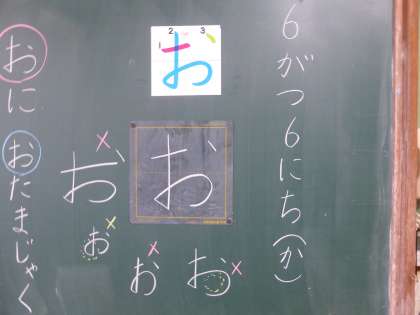 6がつ6にち(か)
1 2 3
お
お
お
お
お
お
おに
おたまじゃく